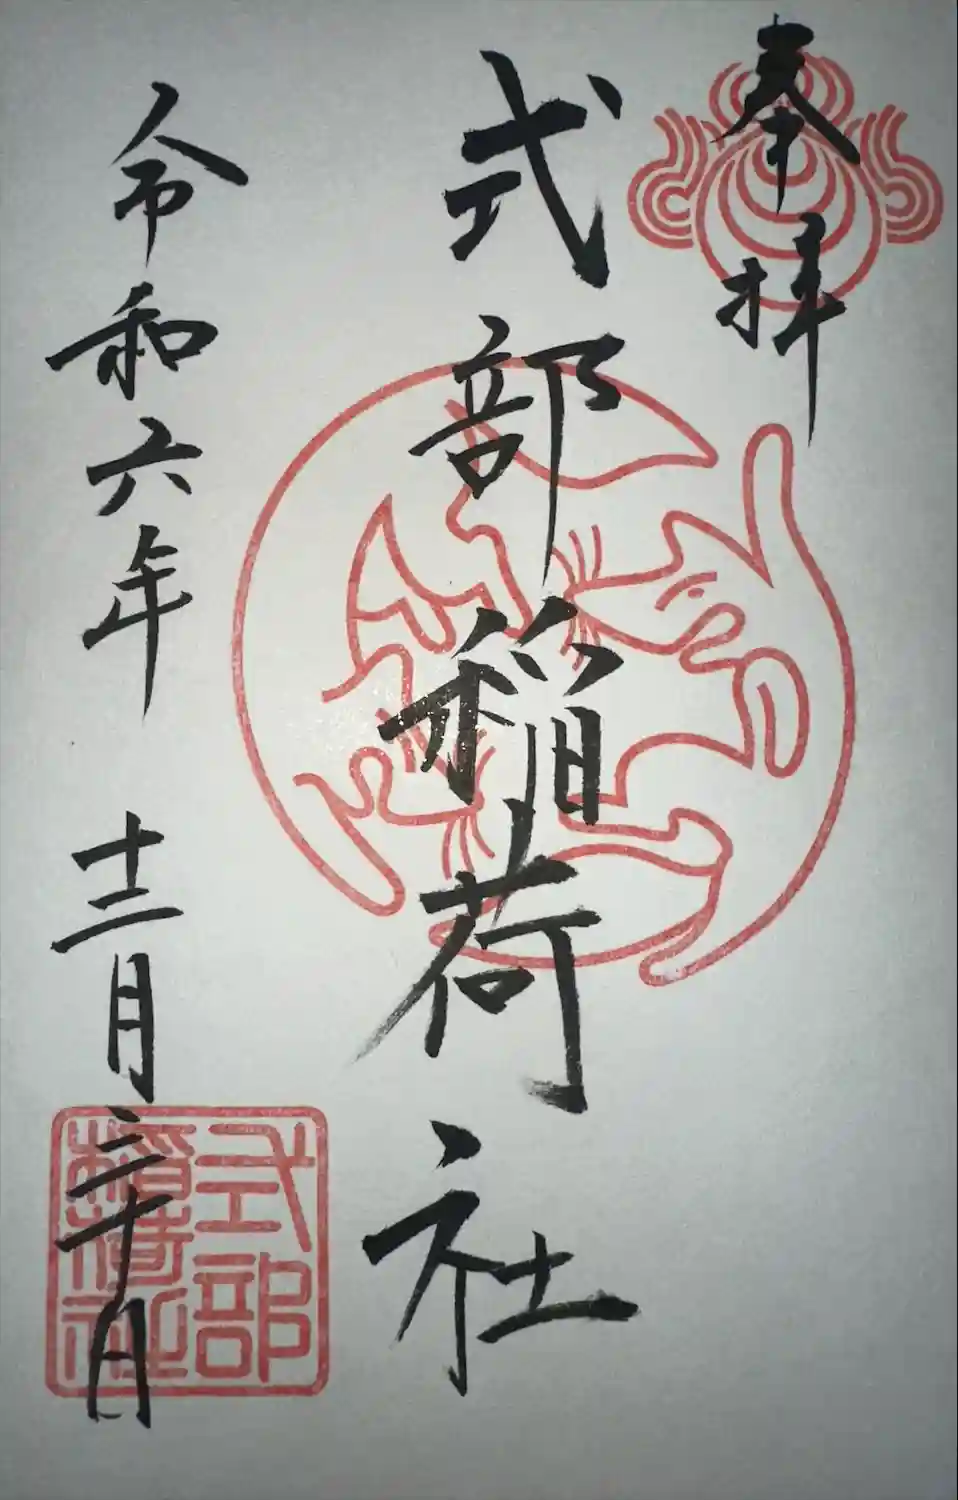 奉拝
式部稲荷社
令和六年 十二月二十日
式部
稲荷社